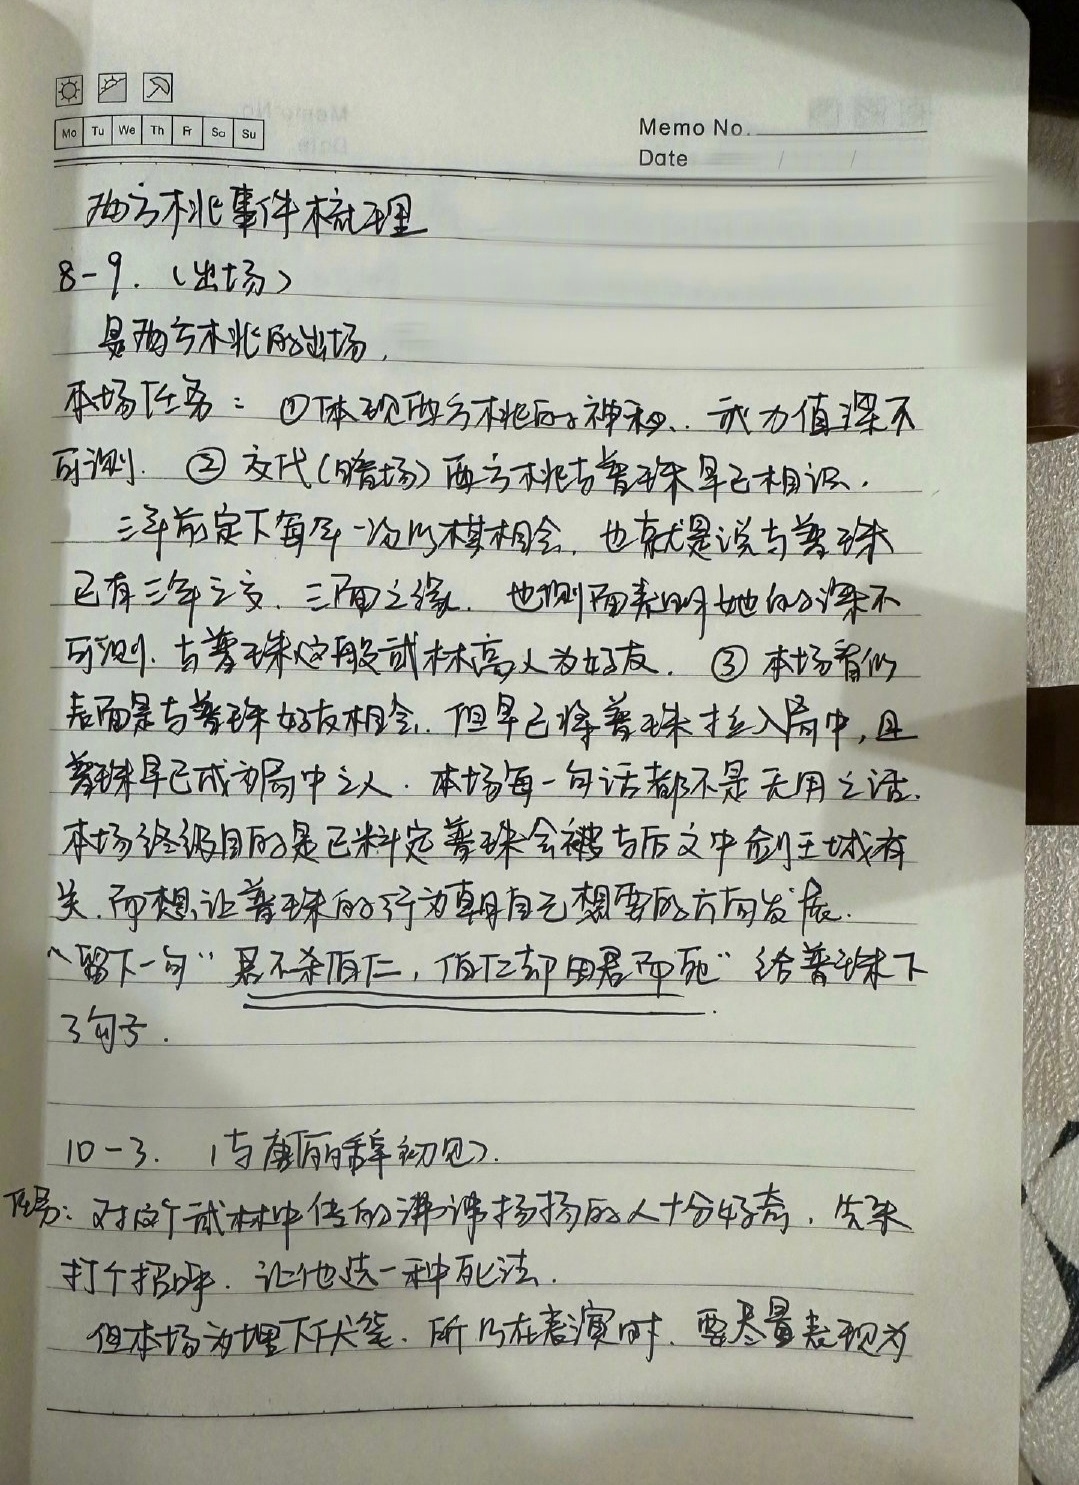 Mo Tu We Th Fr Sa Su
Memo No.
Date / /
西方桃事件梳理
8-9.（出场）
是西方桃的出场，
本场任务：①体现西方桃的神秘、武力值深不
可测. ②交代(暗场)西方桃与普珠早已相识.
三年前定下每年一次以棋相会，也就是说与普珠
已有三年之交、三面之缘. 也侧面表明她的深不
可测. 与普珠这般武林高人为好友. ③本场看似
表面是与普珠好友相会. 但早已将普珠拉入局中，且
普珠早已成为局中之人. 本场每一句话都不是无用之话.
本场终级目的是已料定普珠会被与后文中剑王城有
关. 而想让普珠的行为朝自己想要的方向发展.
留下一句“君不杀伯仁，伯仁却因君而死”给普珠下
了句子.
10-3.（与唐俪辞初见）.
任务：对这个武林中传的沸沸扬扬的人十分好奇，先来
打个招呼. 让他选一种死法.
但本场为埋下伏笔. 所以在表演时. 要尽量表现为